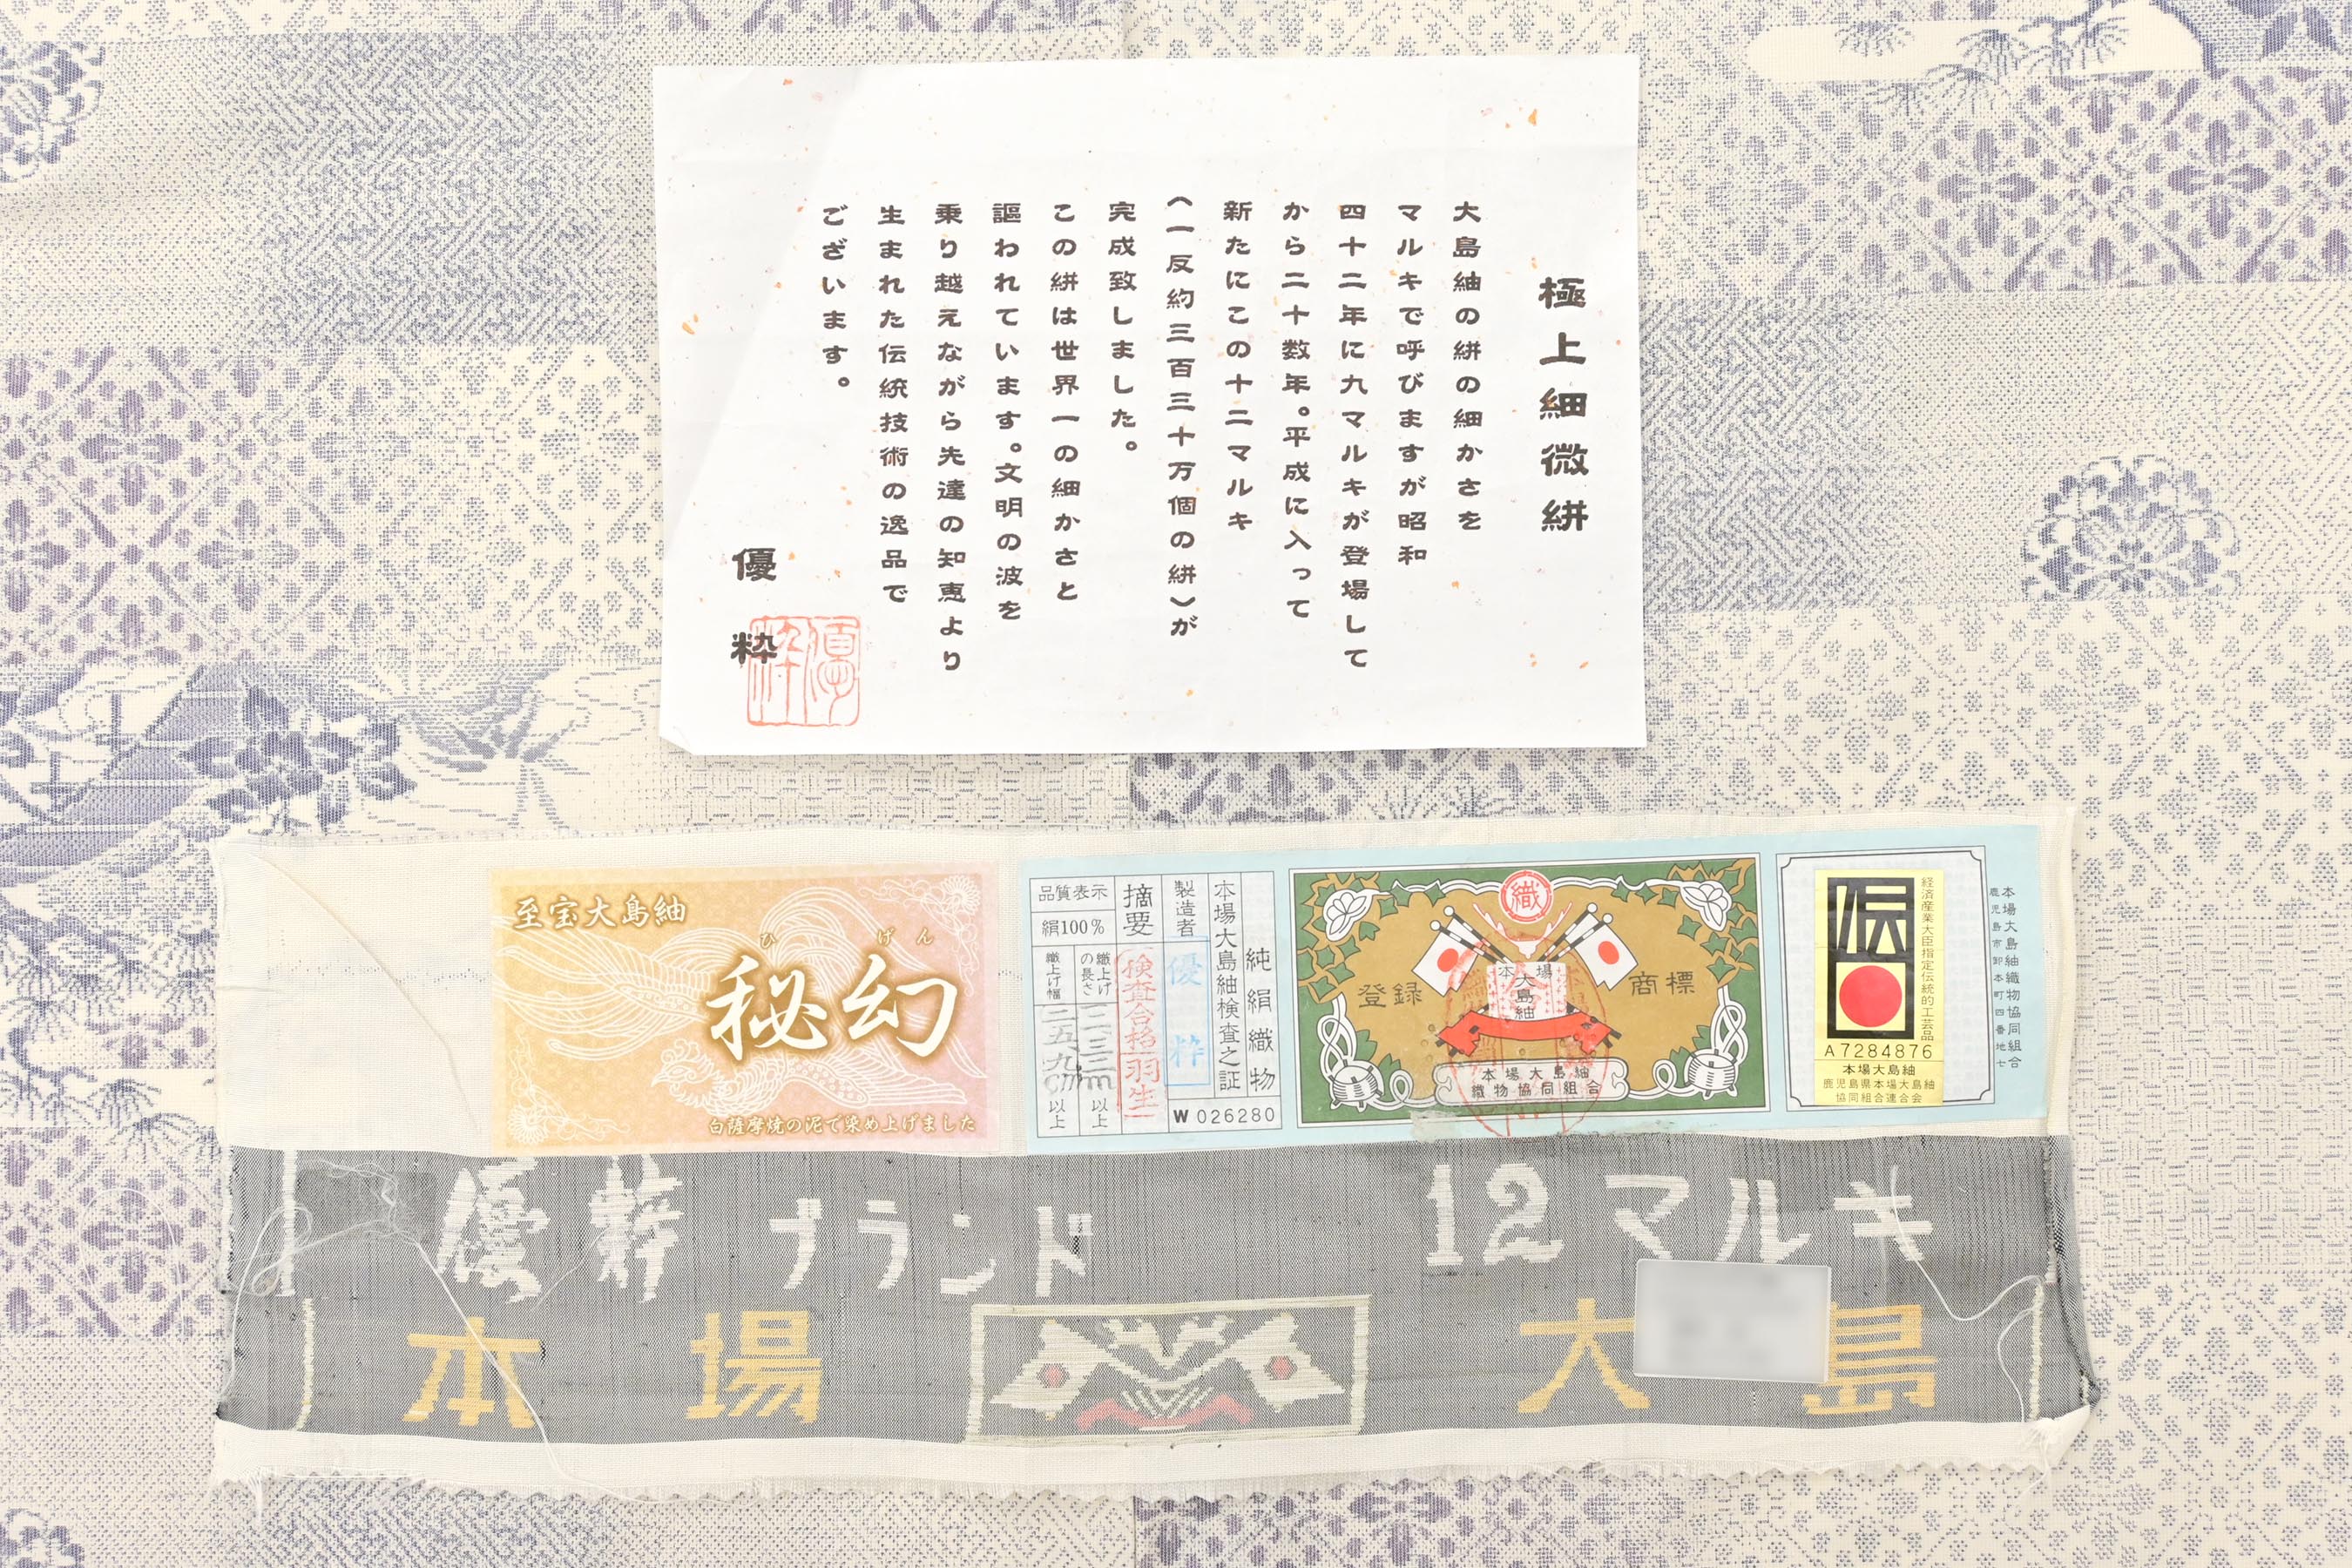 極上細微絣
大島紬の絣の細かさを
マルキで呼びますが昭和
四十二年に九マルキが登場して
から二十数年。平成に入って
新たにこの十二マルキ
(一反約三百三十万個の絣)が
完成致しました。
この絣は世界一の細かさと
謳われています。文明の波を
乗り越えながら先達の知恵より
生まれた伝統技術の逸品で
ございます。
優粋
優粋
至宝大島紬
ひげん
秘幻
白薩摩焼の泥で染め上げました
純絹織物
本場大島紬検査之証
W 026280
製造者
優粋
摘要
検査合格
品質表示
絹100%
織上げの長さ
以上
織上げ幅
以上
織
登録
商標
本場
大島紬
本場大島紬
織物協同組合
経済産業大臣指定伝統的工芸品
伝
A7284876
本場大島紬
鹿児島県本場大島紬
協同組合連合会
本場大島紬織物協同組合
鹿児島市卸本町四番地七
優粋ブランド
12マルキ
本場
大島